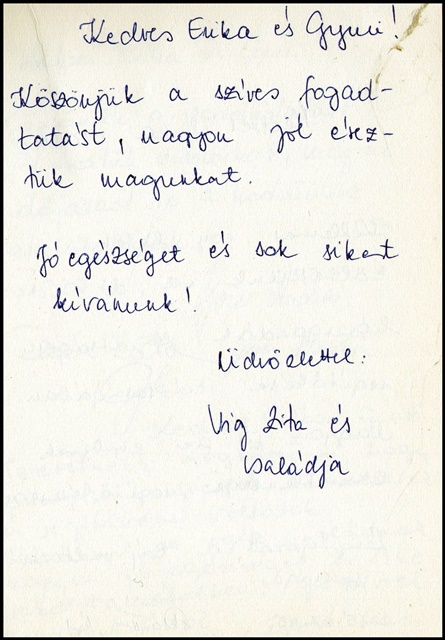 Kedves Erika és Gyuri!
Köszönjük a szíves fogad-
tatást, nagyon jól érez-
tük magunkat.
Jó egészséget és sok sikert
kívánunk!
Üdvözlettel:
Vig Zita és
családja